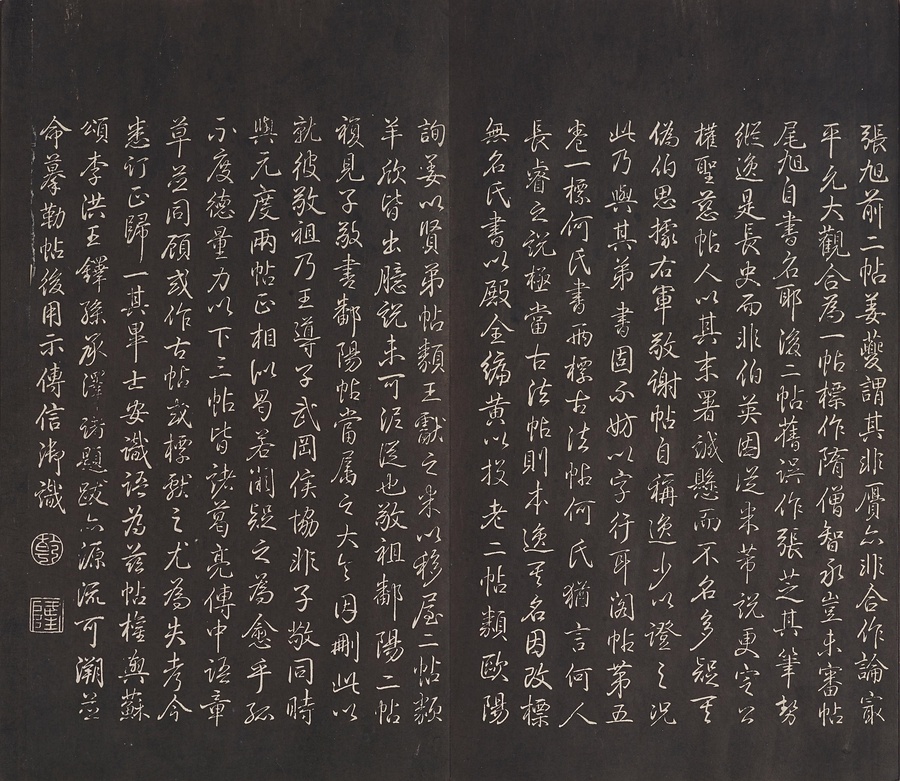 張旭前二帖姜夔謂其非贗亦非合作論宷
平允大觀合為一帖標作隋僧智永豈未審帖
尾旭自書名耶後二帖舊誤作張芝其筆勢
縱逸是長史而非伯英因從米芾說更定公
權聖慈帖人以其末署誠懸而不名多疑其
偽伯思據右軍敬謝帖自稱逸少以證之況
此乃與其弟書固不妨以字行耳閣帖第五
卷一標何氏書兩標古法帖何氏猶言何人
長睿之說極當古法帖則本逸其名因改標
無名氏書以殿全編黃以投老二帖類歐陽
詢姜以賢弟帖類王獻之米以移屋二帖類
羊欣皆出臆說未可泥從也敬祖鄱陽二帖
複見子敬書鄱陽帖當屬之大令因刪此以
就彼敬祖乃王導子武岡侯協非子敬同時
與元度兩帖正相似曷若闕疑之為愈乎孤
不度德量力以下三帖皆諸葛亮傳中語章
草並同顧或作古帖或標猷之尤為失考今
悉訂正歸一其畢士安識語為茲帖權輿蘇
頌李洪王鐸孫承澤諸題跋亦源流可溯並
命摹勒帖後用示傳信御識
乾
隆